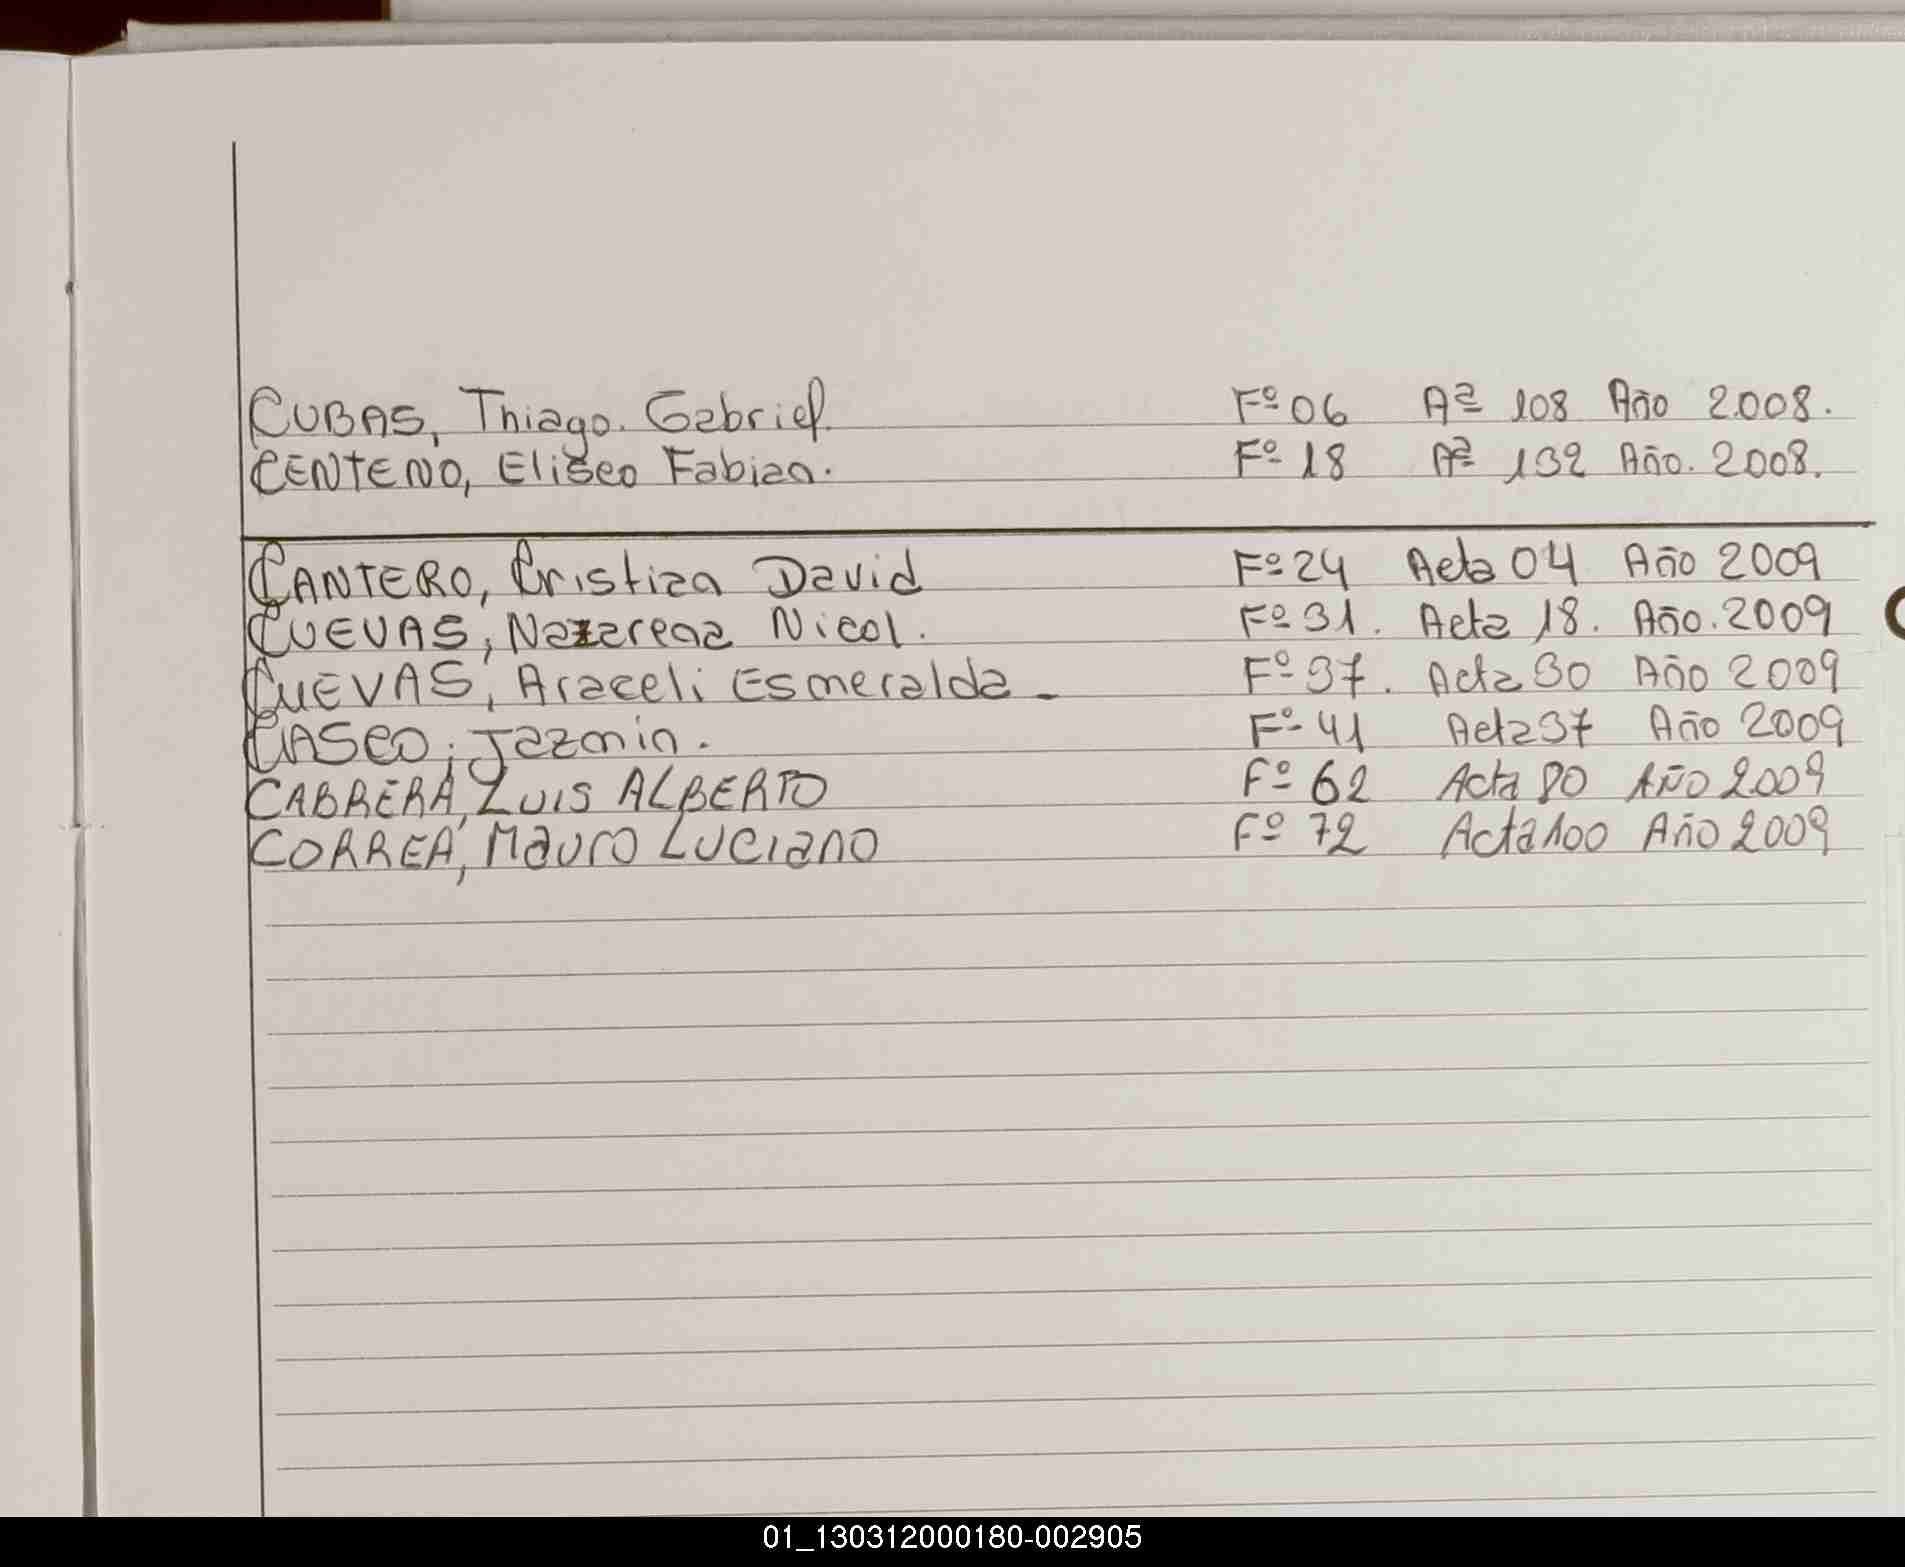 CUBAS, Thiago. Gabriel. Fº 06 Aª 108 Año 2.008.
CENTENO, Eliseo Fabian. Fº 18 Aª 132 Año. 2008.
CANTERO, Cristian David Fº 24 Acta 04 Año 2009
CUEVAS, Nazarena Nicol. Fº 31. Acta 18. Año. 2009
CUEVAS, Araceli Esmeralda - Fº 37. Acta 30 Año 2009
CASCO, Jazmin. Fº 41 Acta 37 Año 2009
CABRERA, LUIS ALBERTO Fº 62 Acta 80 AÑO 2009
CORREA, Mauro Luciano Fº 72 Acta 100 Año 2009
01_130312000180-002905